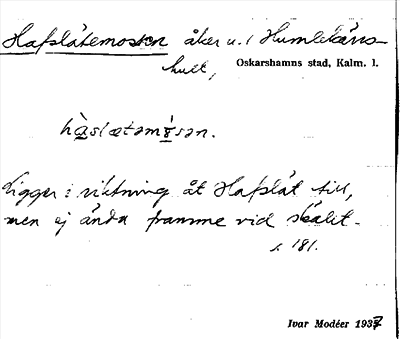 Hafslätemossen åker u. i Humlekärrs-
hult, Oskarshamns stad, Kalm. l.
hàslætəmɷ̀sən.
Ligger i riktning åt Hafslät till,
men ej ända framme vid skälet.
s. 181.
Ivar Modéer 1937